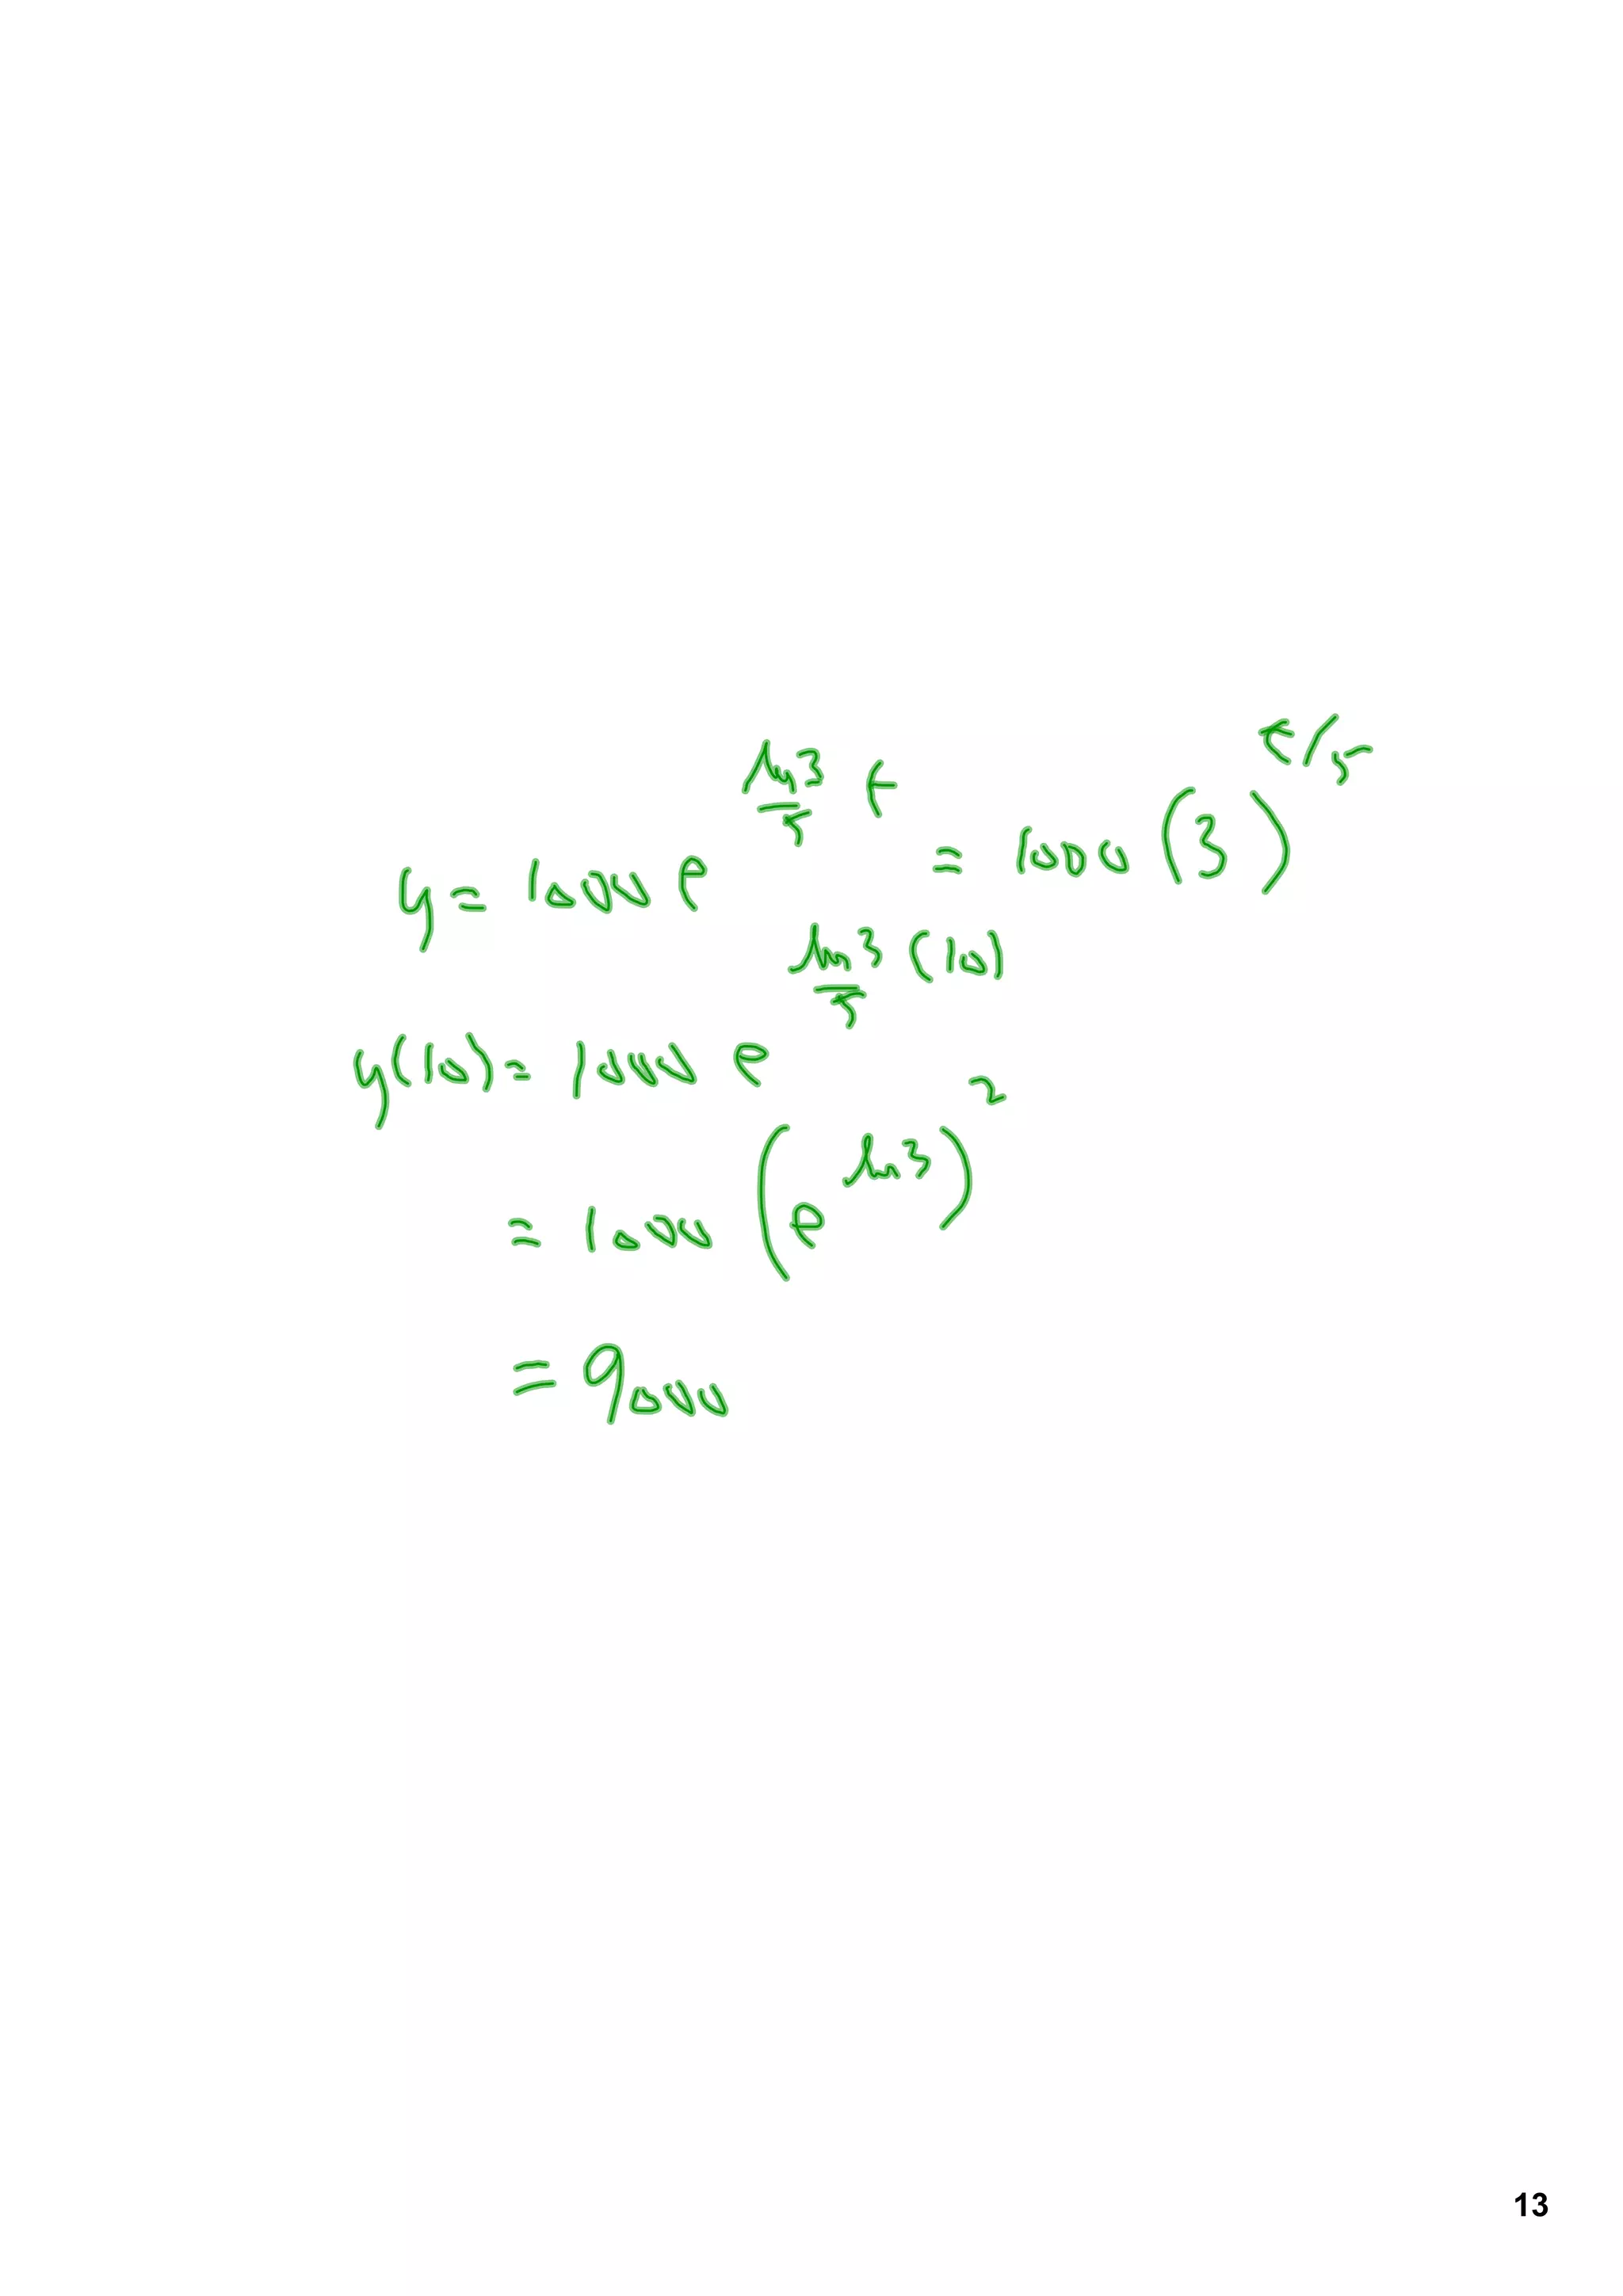 y = 1000 e^(ln3/5 t) = 1000 (3)^(t/5)
y(10) = 1000 e^(ln3/5 (10))
= 1000 (e^(ln3))^2
= 9000
13